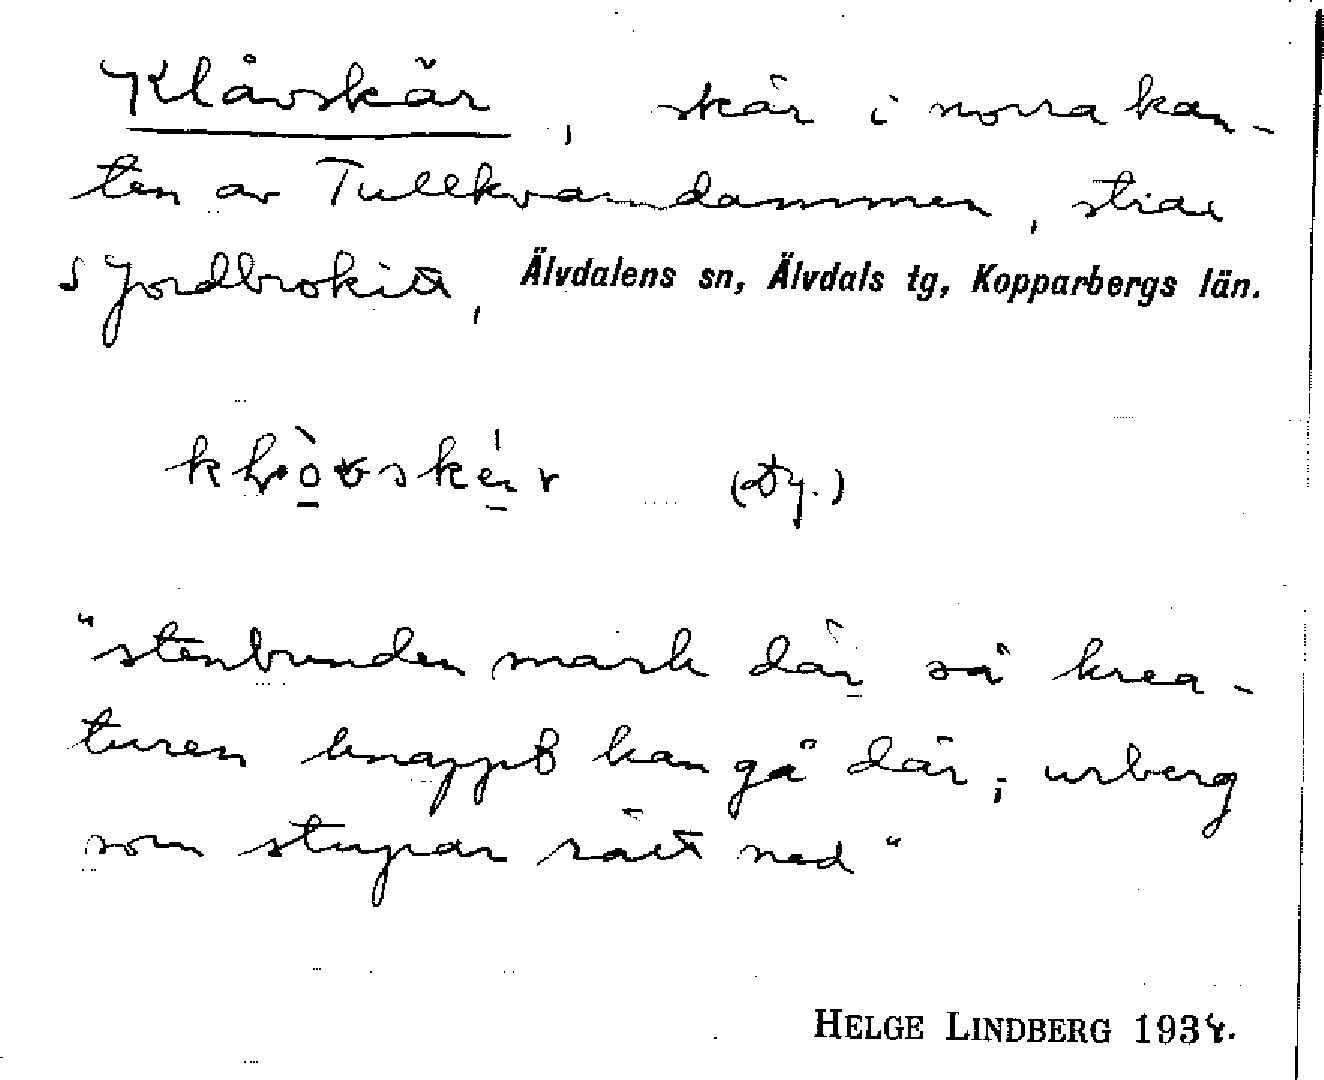 Klåvskär, skär i norra kan-
ten av Tullkvarndammen, strax
s Jordbrokitt, Älvdalens sn, Älvdals tg, Kopparbergs län.
(Dy.)
"stenbunden mark där så krea-
turen knappt kan gå där; urberg
som stupar rätt ned"
HELGE LINDBERG 1934.